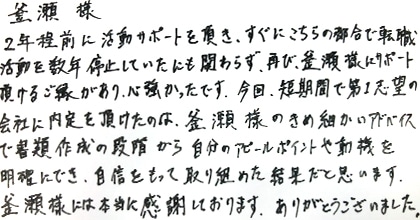 釜瀬 様
2年程前に活動サポートを頂き、すぐにこちらの都合で転職
活動を数年停止していたにも関わらず、再び、釜瀬様にサポート
頂けるご縁があり、心強かったです。今回、短期間で第1志望の
会社に内定を頂けたのは、釜瀬様のきめ細かいアドバイス
で書類作成の段階から自分のアピールポイントや動機を
明確にでき、自信をもって取り組めた結果だと思います。
釜瀬様には本当に感謝しております。ありがとうございました。